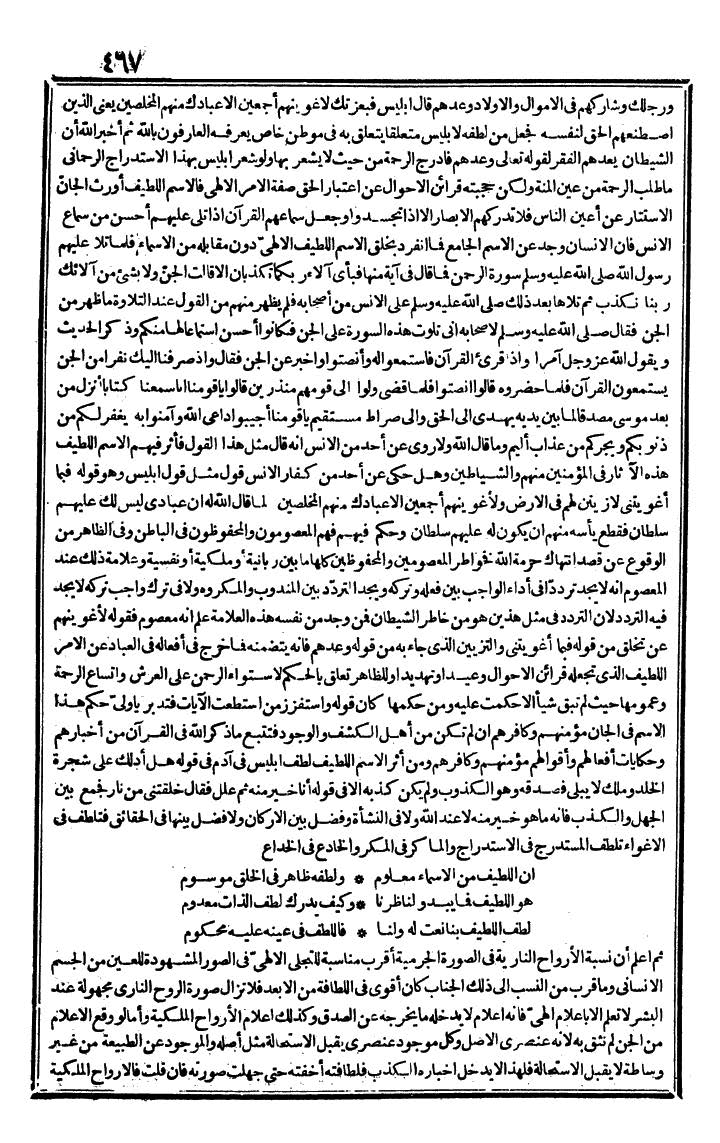 ٤٦٧
ورجلك وشاركهم فى الاموال والاولاد وعدهم قال ابليس فبعزتك لاغوينهم أجمعين الاعبادك منهم المخلصين يعنى الذين
اصطنعهم الحق لنفسه فجعل من لطفه لابليس متعلقا يتعلق به فى موطن خاص يعرفه العارفون بالله ثم أخبر الله أن
الشيطان يعدهم الفقر لقوله تعالى وعدهم فادرج الرحمة من حيث لا يشعر بها ولو شعر ابليس بهذا الاستدراج الرحمانى
ماطلب الرحمة من عين المنة ولكن حجبته قرائن الاحوال عن اعتبار الحق صفة الامر الالهى فالاسم اللطيف أورث الجانّ
الاستتار عن أعين الناس فلا تدركهم الابصار الا اذا تجسدوا وجعل سماعهم القرآن اذا تلى عليهم أحسن من سماع
الانس فان الانسان وجد عن الاسم الجامع فما انفرد بخلق الاسم اللطيف الالهىّ دون مقابله من الاسماء فلما تلا عليهم
رسول الله صلى الله عليه وسلم سورة الرحمن فما قال فى آية منها فبأى آلاء ربكما تكذبان الا قالت الجنّ ولا بشئ من آلائك
ربنا نكذب ثم تلاها بعد ذلك صلى الله عليه وسلم على الانس من أصحابه فلم يظهر منهم من القول عند التلاوة ماظهر من
الجن فقال صلى الله عليه وسلم لاصحابه انى تلوت هذه السورة على الجن فكانوا أحسن استماعا لها منكم وذكر الحديث
ويقول الله عز وجل آمرا واذا قرئ القرآن فاستمعوا له وأنصتوا واخبر عن الجن فقال واذ صرفنا اليك نفرا من الجن
يستمعون القرآن فلما حضروه قالوا انصتوا فلما قضى ولوا الى قومهم منذرين قالوا ياقومنا انا سمعنا كتابا أنزل من
بعد موسى مصدقا لما بين يديه يهدى الى الحق والى صراط مستقيم ياقومنا أجيبوا داعى الله وآمنوا به يغفر لكم من
ذنوبكم ويجركم من عذاب أليم وما قال الله ولا روى عن أحد من الانس انه قال مثل هذا القول فأثر فيهم الاسم اللطيف
هذه الآثار فى المؤمنين منهم والشياطين وهل حكى عن أحد من كفار الانس قول مثل قول ابليس وهو قوله فيما
أغويتنى لازينن لهم فى الارض ولأغوينهم أجمعين الاعبادك منهم المخلصين لما قال الله له ان عبادى ليس لك عليهم
سلطان فقطع يأسه منهم ان يكون له عليهم سلطان وحكم فيهم فهم المعصومون والمحفوظون فى الباطن وفى الظاهر من
الوقوع عن قصد انتهاك حرمة الله فخواطر المعصومين والمحفوظين كلها ما بين ربانية أو ملكية أو نفسية وعلامة ذلك عند
المعصوم انه لا يجد تردّدا فى أداء الواجب بين فعله وتركه ويجد التردّد بين المندوب والمكروه ولا فى ترك واجب تركه لا يجد
فيه التردد لان التردد فى مثل هذين هو من خاطر الشيطان فمن وجد من نفسه هذه العلامة علم انه معصوم فقوله لأغوينهم
عن تخلق من قوله فيما أغويتنى والتزيين الذى جاء به من قوله وعدهم فانه يتضمنه فما خرج فى أفعاله فى العباد عن الامر
اللطيف الذى تجعله قرائن الاحوال وعيدا وتهديدا وللظاهر تعلق بالحكم لاستواء الرحمن على العرش واتساع الرحمة
وعمومها حيث لم تبق شيأ الا حكمت عليه ومن حكمها كان قوله واستفزز من استطعت الآيات فتدبر ياولىّ حكم هذا
الاسم فى الجان مؤمنهم وكافرهم ان لم تكن من أهل الكشف والوجود فتتبع ماذكر الله فى القرآن من أخبارهم
وحكايات أفعالهم وأقوالهم مؤمنهم وكافرهم ومن أثر الاسم اللطيف لطف ابليس فى آدم فى قوله هل أدلك على شجرة
الخلد وملك لا يبلى فصدقه وهو الكذوب ولم يكن كذبه الا فى قوله أنا خير منه ثم علل فقال خلقتنى من نار فجمع بين
الجهل والكذب فانه ماهو خير منه لا عند الله ولا فى النشأة وفضل بين الاركان ولا فضل بينها فى الحقائق فتلطف فى
الاغواء تلطف المستدرج فى الاستدراج والماكر فى المكر والخادع فى الخداع
ان اللطيف من الاسماء معلوم * ولطفه ظاهر فى الخلق موسوم
هو اللطيف فما يبدو لناظرنا * وكيف يدرك لطف الذات معدوم
لطف اللطيف بنا نعت له ولنا * فاللطف فى عينه عليه محكوم
ثم اعلم أن نسبة الأرواح النارية فى الصورة الجرمية أقرب مناسبة للتجلى الالهىّ فى الصور المشهودة للعين من الجسم
الانسانى وما قرب من النسب الى ذلك الجناب كان أقوى فى اللطافة من الابعد فلا تزال صورة الروح النارى مجهولة عند
البشر لا تعلم الا باعلام الهىّ فانه اعلام لا يدخله ما يخرجه عن الصدق وكذلك اعلام الأرواح الملكية وأما لو وقع الاعلام
من الجن لم نثق به لانه عنصرى الاصل وكل موجود عنصرى يقبل الاستحالة مثل أصله والموجود عن الطبيعة من غير
وساطة لا يقبل الاستحالة فلهذا لا يدخل اخباره الكذب فلطافته أخفته حتى جهلت صورته فان قلت فالارواح الملكية